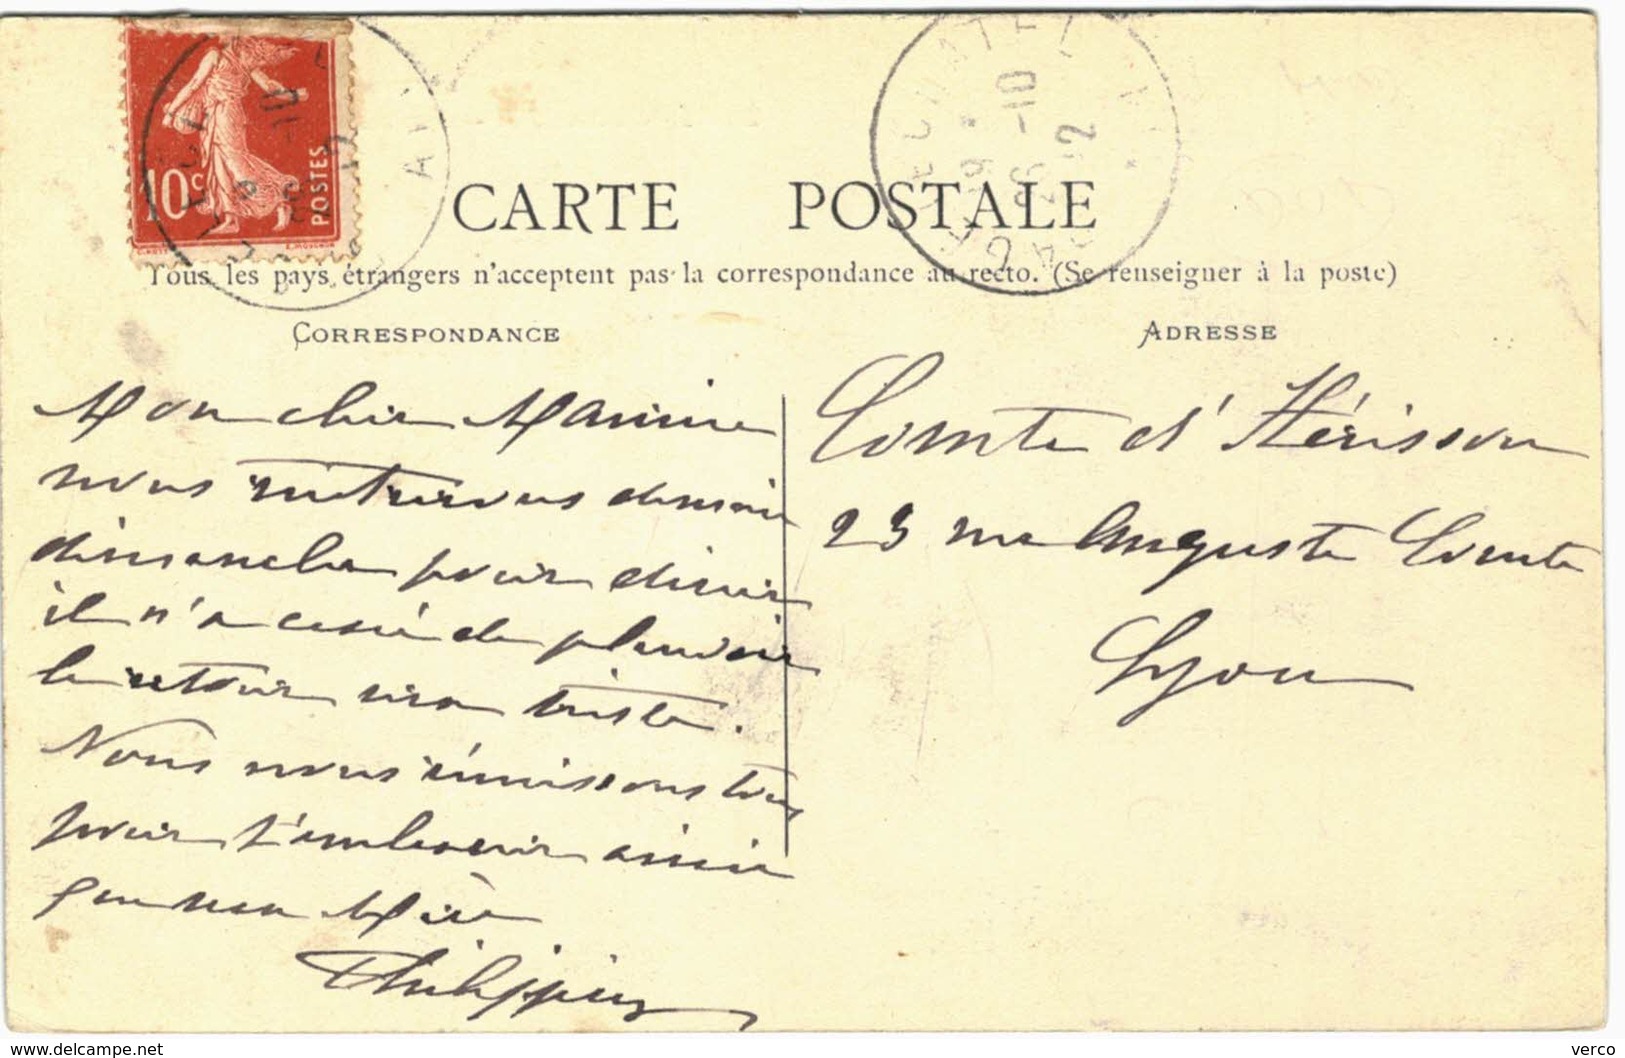 10c
POSTES
CARTE POSTALE
Tous les pays étrangers n'acceptent pas la correspondance au recto. (Se renseigner à la poste)
CORRESPONDANCE
ADRESSE
Mon cher Maxime
nous rentrerons demain
dimanche pour diner
il n'a cessé de pleuvoir
le retour sera triste.
Nous nous réunissons tous
pour t'embrasser ainsi
que mon Père
Philippine
Comte d'Hérisson
23 rue Auguste Comte
Lyon
www.delcampe.net
verco